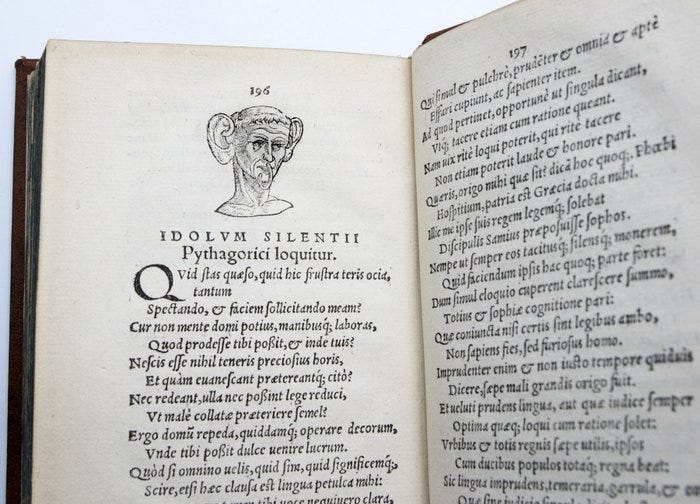 196
IDOLVM SILENTII
Pythagorici loquitur.
QVid stas quæso, quid hic frustra teris ocia,
tantum
Spectando, & faciem sollicitando meam?
Cur non mente domi potius, manibusq; laboras,
Quod prodesse tibi poßit, & inde tuis?
Nescis esse nihil teneris preciosius horis,
Et quàm euanescant prætereantq; citò?
Nec redeant, ulla nec poßint lege reduci,
Vt malè collatæ præteriere semel?
Ergo domũ repeda, quiddamq; operare decorum,
Vnde tibi poßit dulce uenire lucrum.
Quòd si omnino uelis, quid sim, quid significemq;,
Scire, etsi hæc clausa est lingua petulca mihi:
tibi uoce nequiuero clara,
197
Qui simul & pulchrè, prudẽter & omnia & aptè
Effari cupiunt, ac sapienter item.
Ad quod pertinet, opportunè ut singula dicant,
Vtq; tacere etiam cum ratione queant.
Nam uix ritè loqui poterit, qui ritè tacere
Non etiam poterit laude & honore pari.
Quæris, origo mihi quæ sit? dicã hoc quoq;. Phœbi
Hospitium, patria est Græcia docta mihi.
Illic me ipse suis regem legemq; solebat
Discipulis Samius præposuisse sophos.
Nempe ut semper eos tacitusq; silensq; monerem,
Quid faciendum ipsis hac quoq; parte foret:
Dum simul eloquio cuperent clarescere summo,
Totius & sophiæ cognitione pari:
Quæ coniuncta nisi certis sint legibus ambo,
Non sapiens fies, sed furiosus homo.
Imprudenter enim & non iusto tempore quiduis
Dicere, sæpe mali grandis origo fuit.
Et ueluti prudens lingua, aut quæ iudice semper
Optima quæq; loqui cum ratione solet:
Vrbibus & totis regnis sæpe utilis, ipsos
Cum ducibus populos totaq; regna beat:
Sic lingua imprudens, temeraria, garrula, &